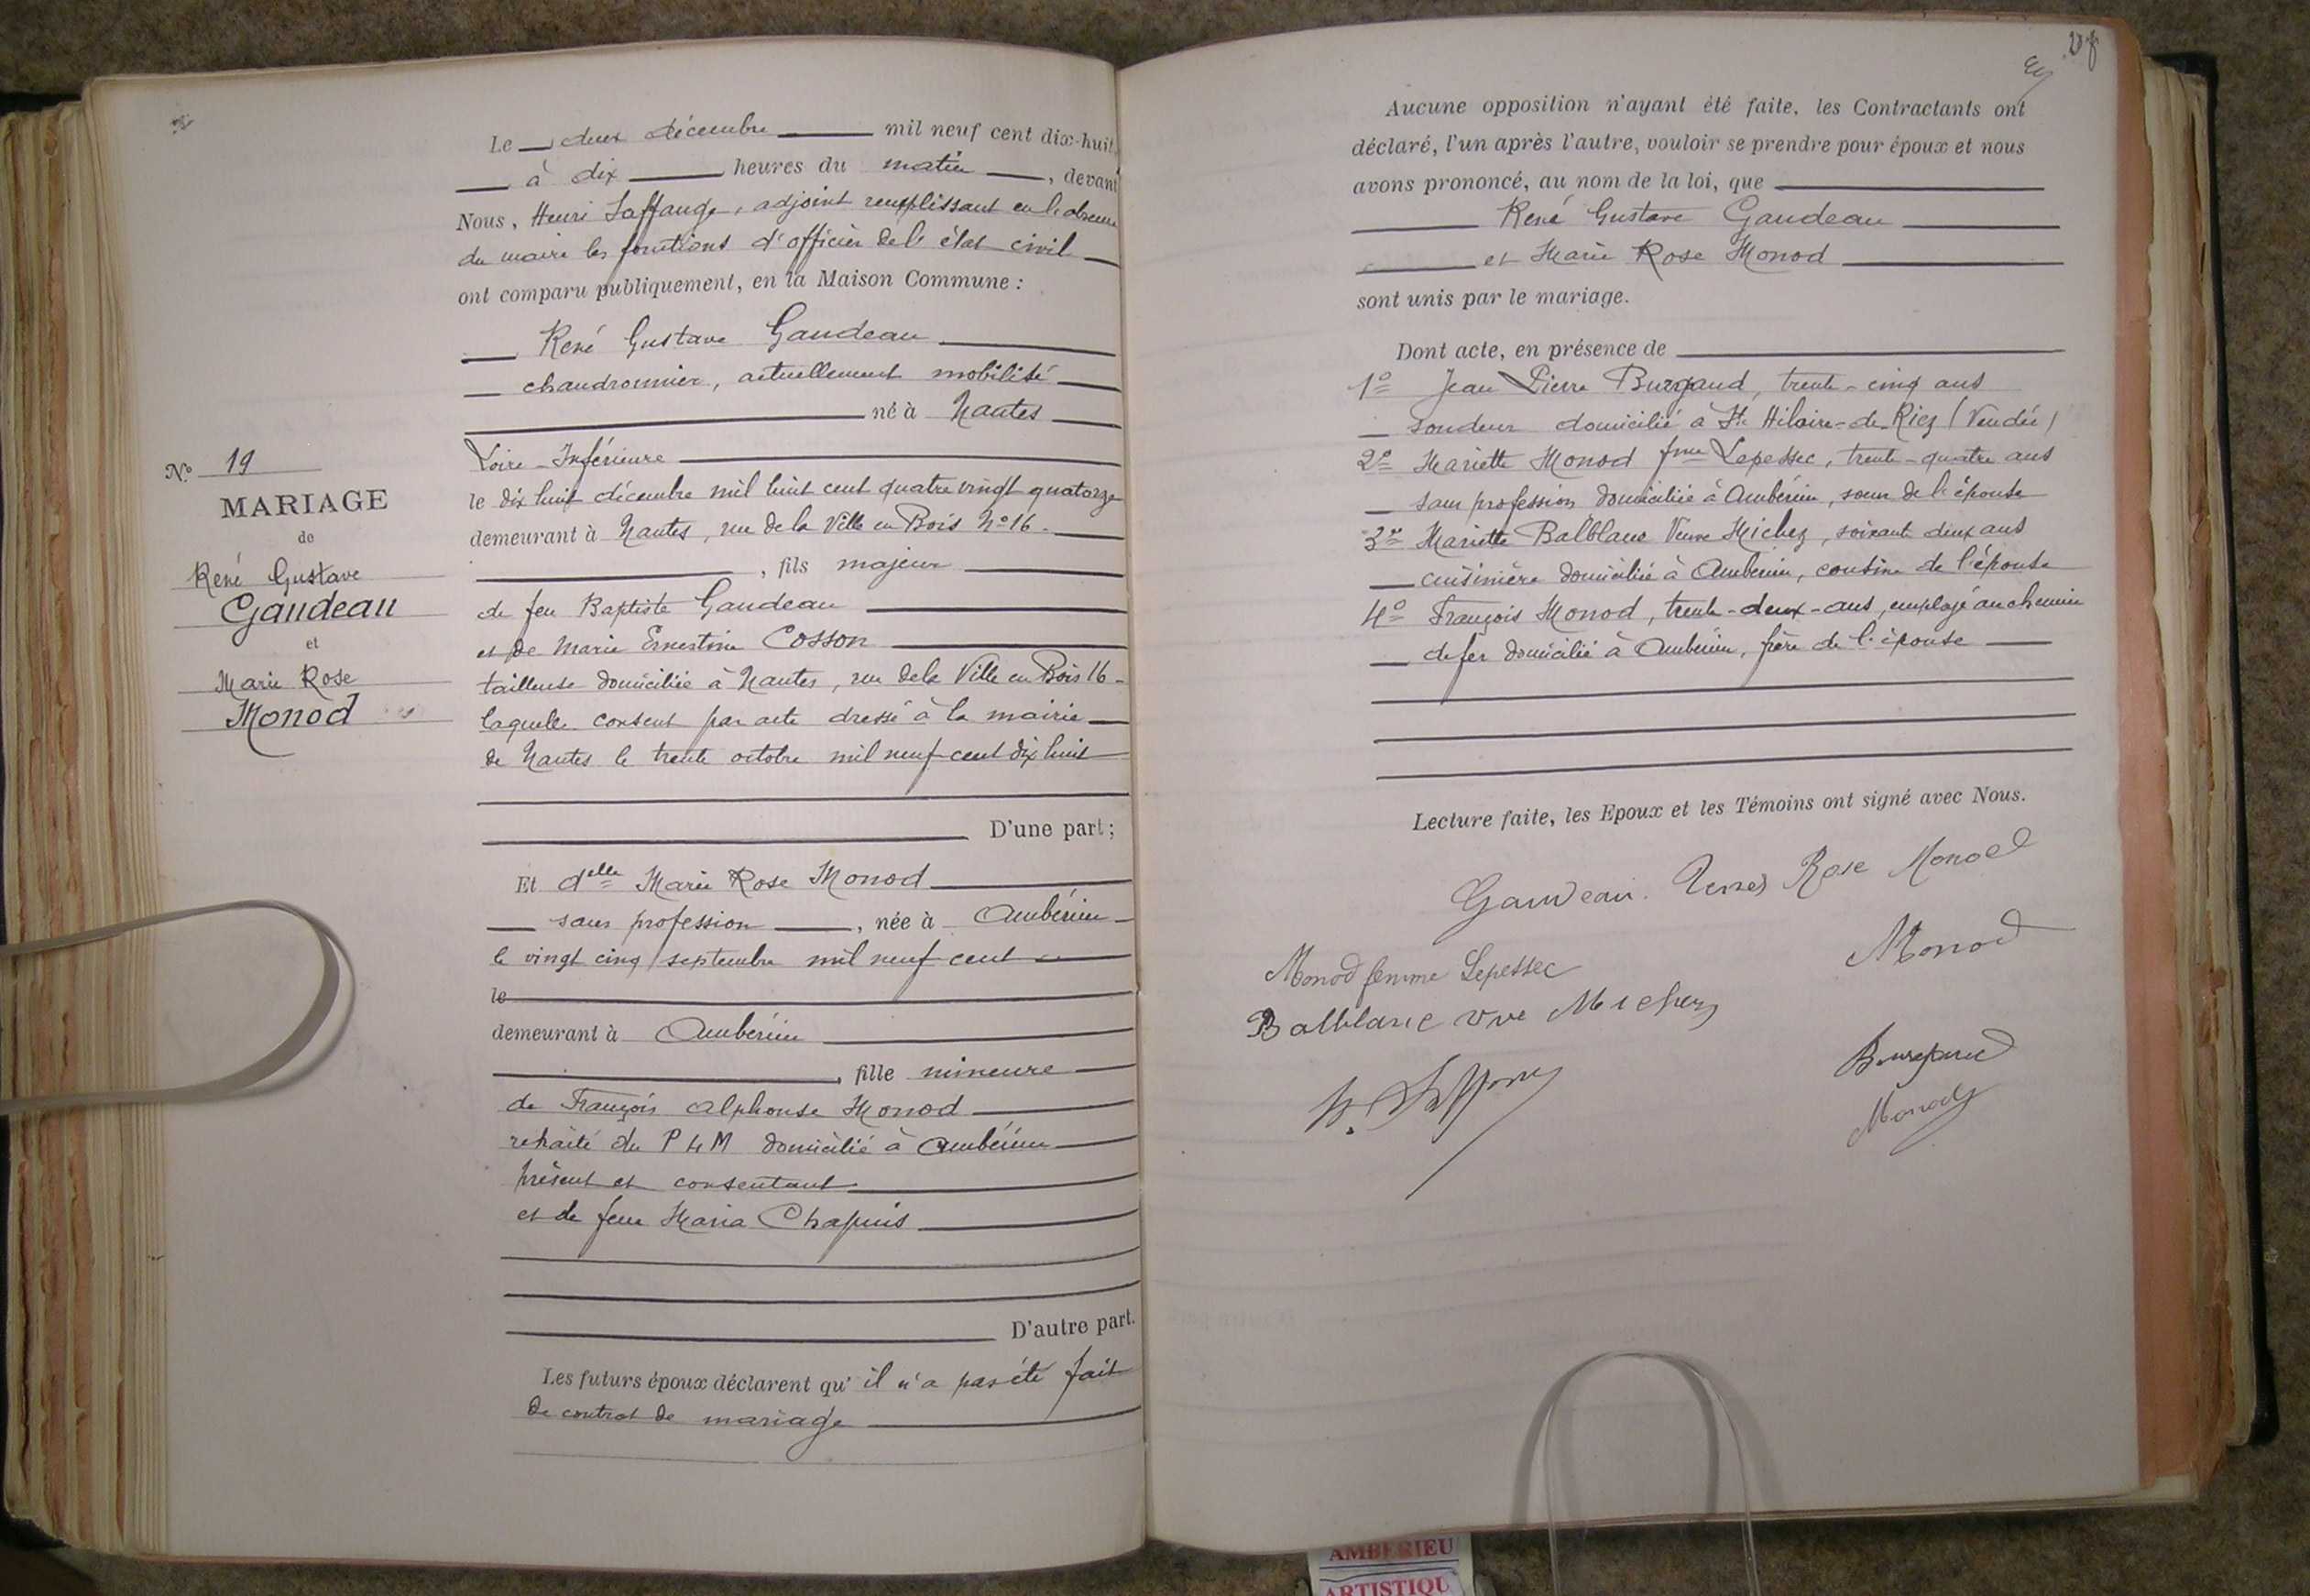 Le deux décembre mil neuf cent dix-huit
à dix heures du matin, devant
Nous, Henri Laffange, adjoint remplissant en l'absence
du maire les fonctions d'officier de l'état civil
ont comparu publiquement, en la Maison Commune :
René Gustave Gaudeau
chaudronnier, actuellement mobilisé
né à Nantes
Loire-Inférieure
le dix huit décembre mil huit cent quatre vingt quatorze
demeurant à Nantes, rue de la Ville en Bois No 16.
, fils majeur
de feu Baptiste Gaudeau
et de Marie Ernestine Cosson
tailleuse domiciliée à Nantes, rue de la Ville en Bois 16
laquelle consent par acte dressé à la mairie
de Nantes le trente octobre mil neuf cent dix huit
D'une part ;
No 19
MARIAGE
de
René Gustave
Gaudeau
et
Marie Rose
Monod
Et delle Marie Rose Monod
sans profession, née à Ambérieu
le vingt cinq septembre mil neuf cent
le
demeurant à Ambérieu
, fille mineure
de François Alphonse Monod
retraité du PLM domicilié à Ambérieu
présent et consentant
et de feue Maria Chapuis
D'autre part.
Les futurs époux déclarent qu'il n'a pas été fait
de contrat de mariage
Aucune opposition n'ayant été faite, les Contractants ont
déclaré, l'un après l'autre, vouloir se prendre pour époux et nous
avons prononcé, au nom de la loi, que
René Gustave Gaudeau
et Marie Rose Monod
sont unis par le mariage.
Dont acte, en présence de
1o Jean Pierre Burgaud, trente-cinq ans
soudeur domicilié à St Hilaire-de-Riez (Vendée)
2o Mariette Monod fme Lepessec, trente-quatre ans
sans profession domiciliée à Ambérieu, soeur de l'épouse
3o Mariette Balblanc Veuve Michez, soixante deux ans
cuisinière domiciliée à Ambérieu, cousine de l'épouse
4o François Monod, trente-deux-ans, employé au chemin
de fer domicilié à Ambérieu, frère de l'épouse
Lecture faite, les Epoux et les Témoins ont signé avec Nous.
Gaudeau René Rose Monod
Monod femme Lepessec
Monod
Balblanc vve Michez
Burgaud
Monod
AMBERIEU
ARTISTIQU